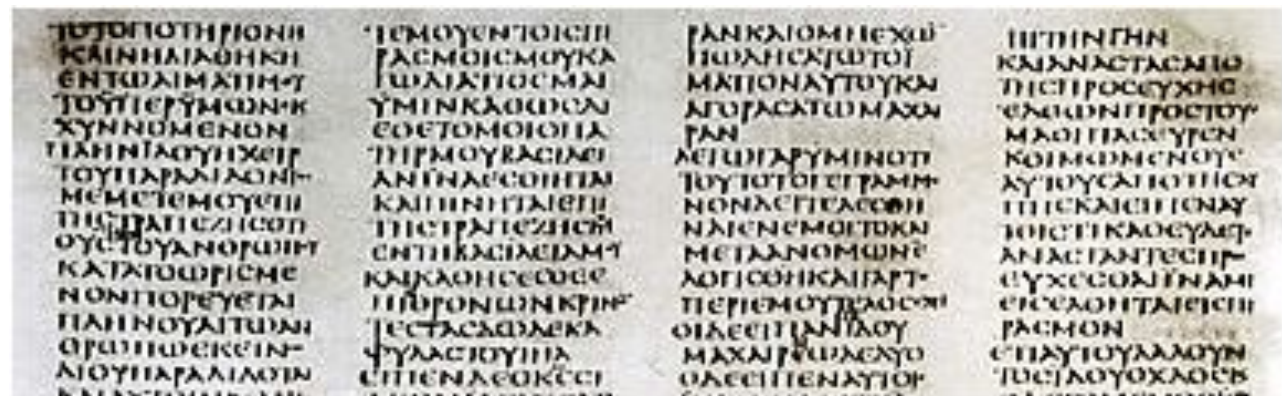 ΤΟΤΟΠΟΤΗΡΙΟΝΗ
ΚΑΙΝΗΔΙΑΘΗΚΗ
ΕΝΤΩΑΙΜΑΤΙΜΟΥ
ΤΟΫΠΕΡΫΜΩΝΕΚ
ΧΥΝΝΟΜΕΝΟΝ
ΠΛΗΝΪΔΟΥΗΧΕΙΡ
ΤΟΥΠΑΡΑΔΙΔΟΝΤ
ΜΕΜΕΤΕΜΟΥΕΠΙ
ΤΗϹΤΡΑΠΕΖΗϹΟΤΙ
ΟΥϹΤΟΥΑΝΘΡΩΠΟΥ
ΚΑΤΑΤΟΩΡΙϹΜΕ
ΝΟΝΠΟΡΕΥΕΤΑΙ
ΠΛΗΝΟΥΑΙΤΩΑΝ
ΘΡΩΠΩΕΚΕΙΝΩ
ΔΙΟΥΠΑΡΑΔΙΔΟΤΑΙ
ΤΕΜΟΥΕΝΤΟΙϹΠΙ
ΡΑϹΜΟΙϹΜΟΥΚΑ
ΓΩΔΙΑΤΙΘΕΜΑΙ
ΥΜΙΝΚΑΘΩϹΔΙ
ΕΘΕΤΟΜΟΙΟΠΑ
ΤΗΡΜΟΥΒΑϹΙΛΕΙ
ΑΝΪΝΑΕϹΘΗΤΑΙ
ΚΑΙΠΙΝΗΤΑΙΕΠΙ
ΤΗϹΤΡΑΠΕΖΗϹΜ
ΕΝΤΗΒΑϹΙΛΕΙΑΜΟΥ
ΚΑΙΚΑΘΗϹΕϹΘΕΕ
ΠΙΘΡΟΝΩΝΚΡΙΝΟ
ΤΕϹΤΑϹΔΩΔΕΚΑ
ΦΥΛΑϹΤΟΥΙΗΛ
ΕΙΠΕΝΔΕΟΚϹϹΙ
ΡΑΝΚΑΙΟΜΗΕΧΩΝ
ΠΩΛΗϹΑΤΩΤΟΪ
ΜΑΤΙΟΝΑΥΤΟΥΚΑΙ
ΑΓΟΡΑϹΑΤΩΜΑΧΑΙ
ΡΑΝ
ΛΕΓΩΓΑΡΥΜΙΝΟΤΙ
ΤΟΥΤΟΤΟΓΕΓΡΑΜΜΕ
ΝΟΝΔΕΙΤΕΛΕϹΘΗ
ΝΑΙΕΝΕΜΟΙΤΟΚΑΙ
ΜΕΤΑΑΝΟΜΩΝΕ
ΛΟΓΙϹΘΗΚΑΙΓΑΡΤΟ
ΠΕΡΙΕΜΟΥΤΕΛΟϹΕΧΙ
ΟΙΔΕΕΙΠΑΝΪΔΟΥ
ΜΑΧΑΙΡΕΩΔΕΔΥΟ
ΟΔΕΕΙΠΕΝΑΥΤΟΙϹ
ΠΙΤΗΝΓΗΝ
ΚΑΙΑΝΑϹΤΑϹΑΠΟ
ΤΗϹΠΡΟϹΕΥΧΗϹ
ΕΛΘΩΝΠΡΟϹΤΟΥϹ
ΜΑΘΗΤΑϹΕΥΡΕΝ
ΚΟΙΜΩΜΕΝΟΥϹ
ΑΥΤΟΥϹΑΠΟΤΗϹΛΥ
ΠΗϹΚΑΙΕΙΠΕΝΑΥ
ΤΟΙϹΤΙΚΑΘΕΥΔΕΤΕ
ΑΝΑϹΤΑΝΤΕϹΠΡΟ
ϹΕΥΧΕϹΘΑΙΪΝΑΜΗ
ΕΙϹΕΛΘΗΤΑΙΕΙϹΠΙ
ΡΑϹΜΟΝ
ΕΤΙΑΥΤΟΥΛΑΛΟΥΝ
ΤΟϹΪΔΟΥΟΧΛΟϹΚ